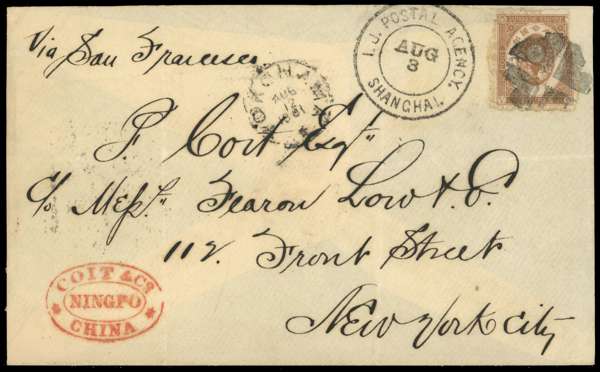 Via San Francisco
I.J. POSTAL AGENCY.
AUG
3
SHANGHAI.
YOKOHAMA
AUG
12
1881
F. Coit Esqr
c/o Messrs Fearon Low & Co.
112. Front Street
New York City
COIT & Co.
NINGPO
CHINA